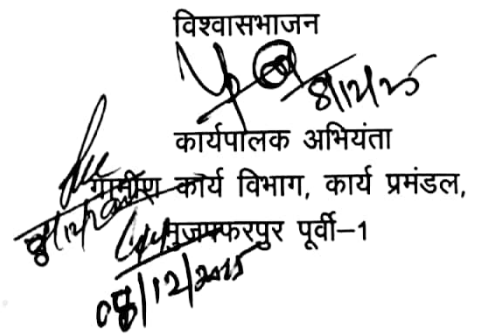 विश्वासभाजन
8/12/25
कार्यपालक अभियंता
ग्रामीण कार्य विभाग, कार्य प्रमंडल,
मुजफ्फरपुर पूर्वी–1
08/12/2025